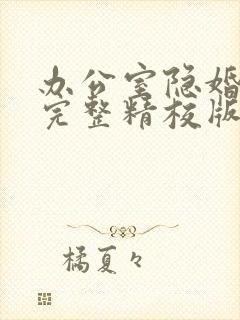 办公室隐婚
完整精校版
橘夏々